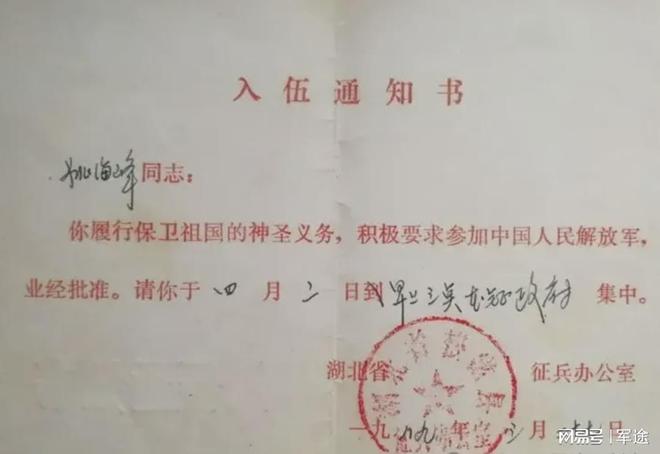 入伍通知书
海峰同志：
你履行保卫祖国的神圣义务，积极要求参加中国人民解放军，
业经批准。请你于四月二日到 政府集中。
湖北省 征兵办公室
一九八九年三月 日
网易号 | 军途